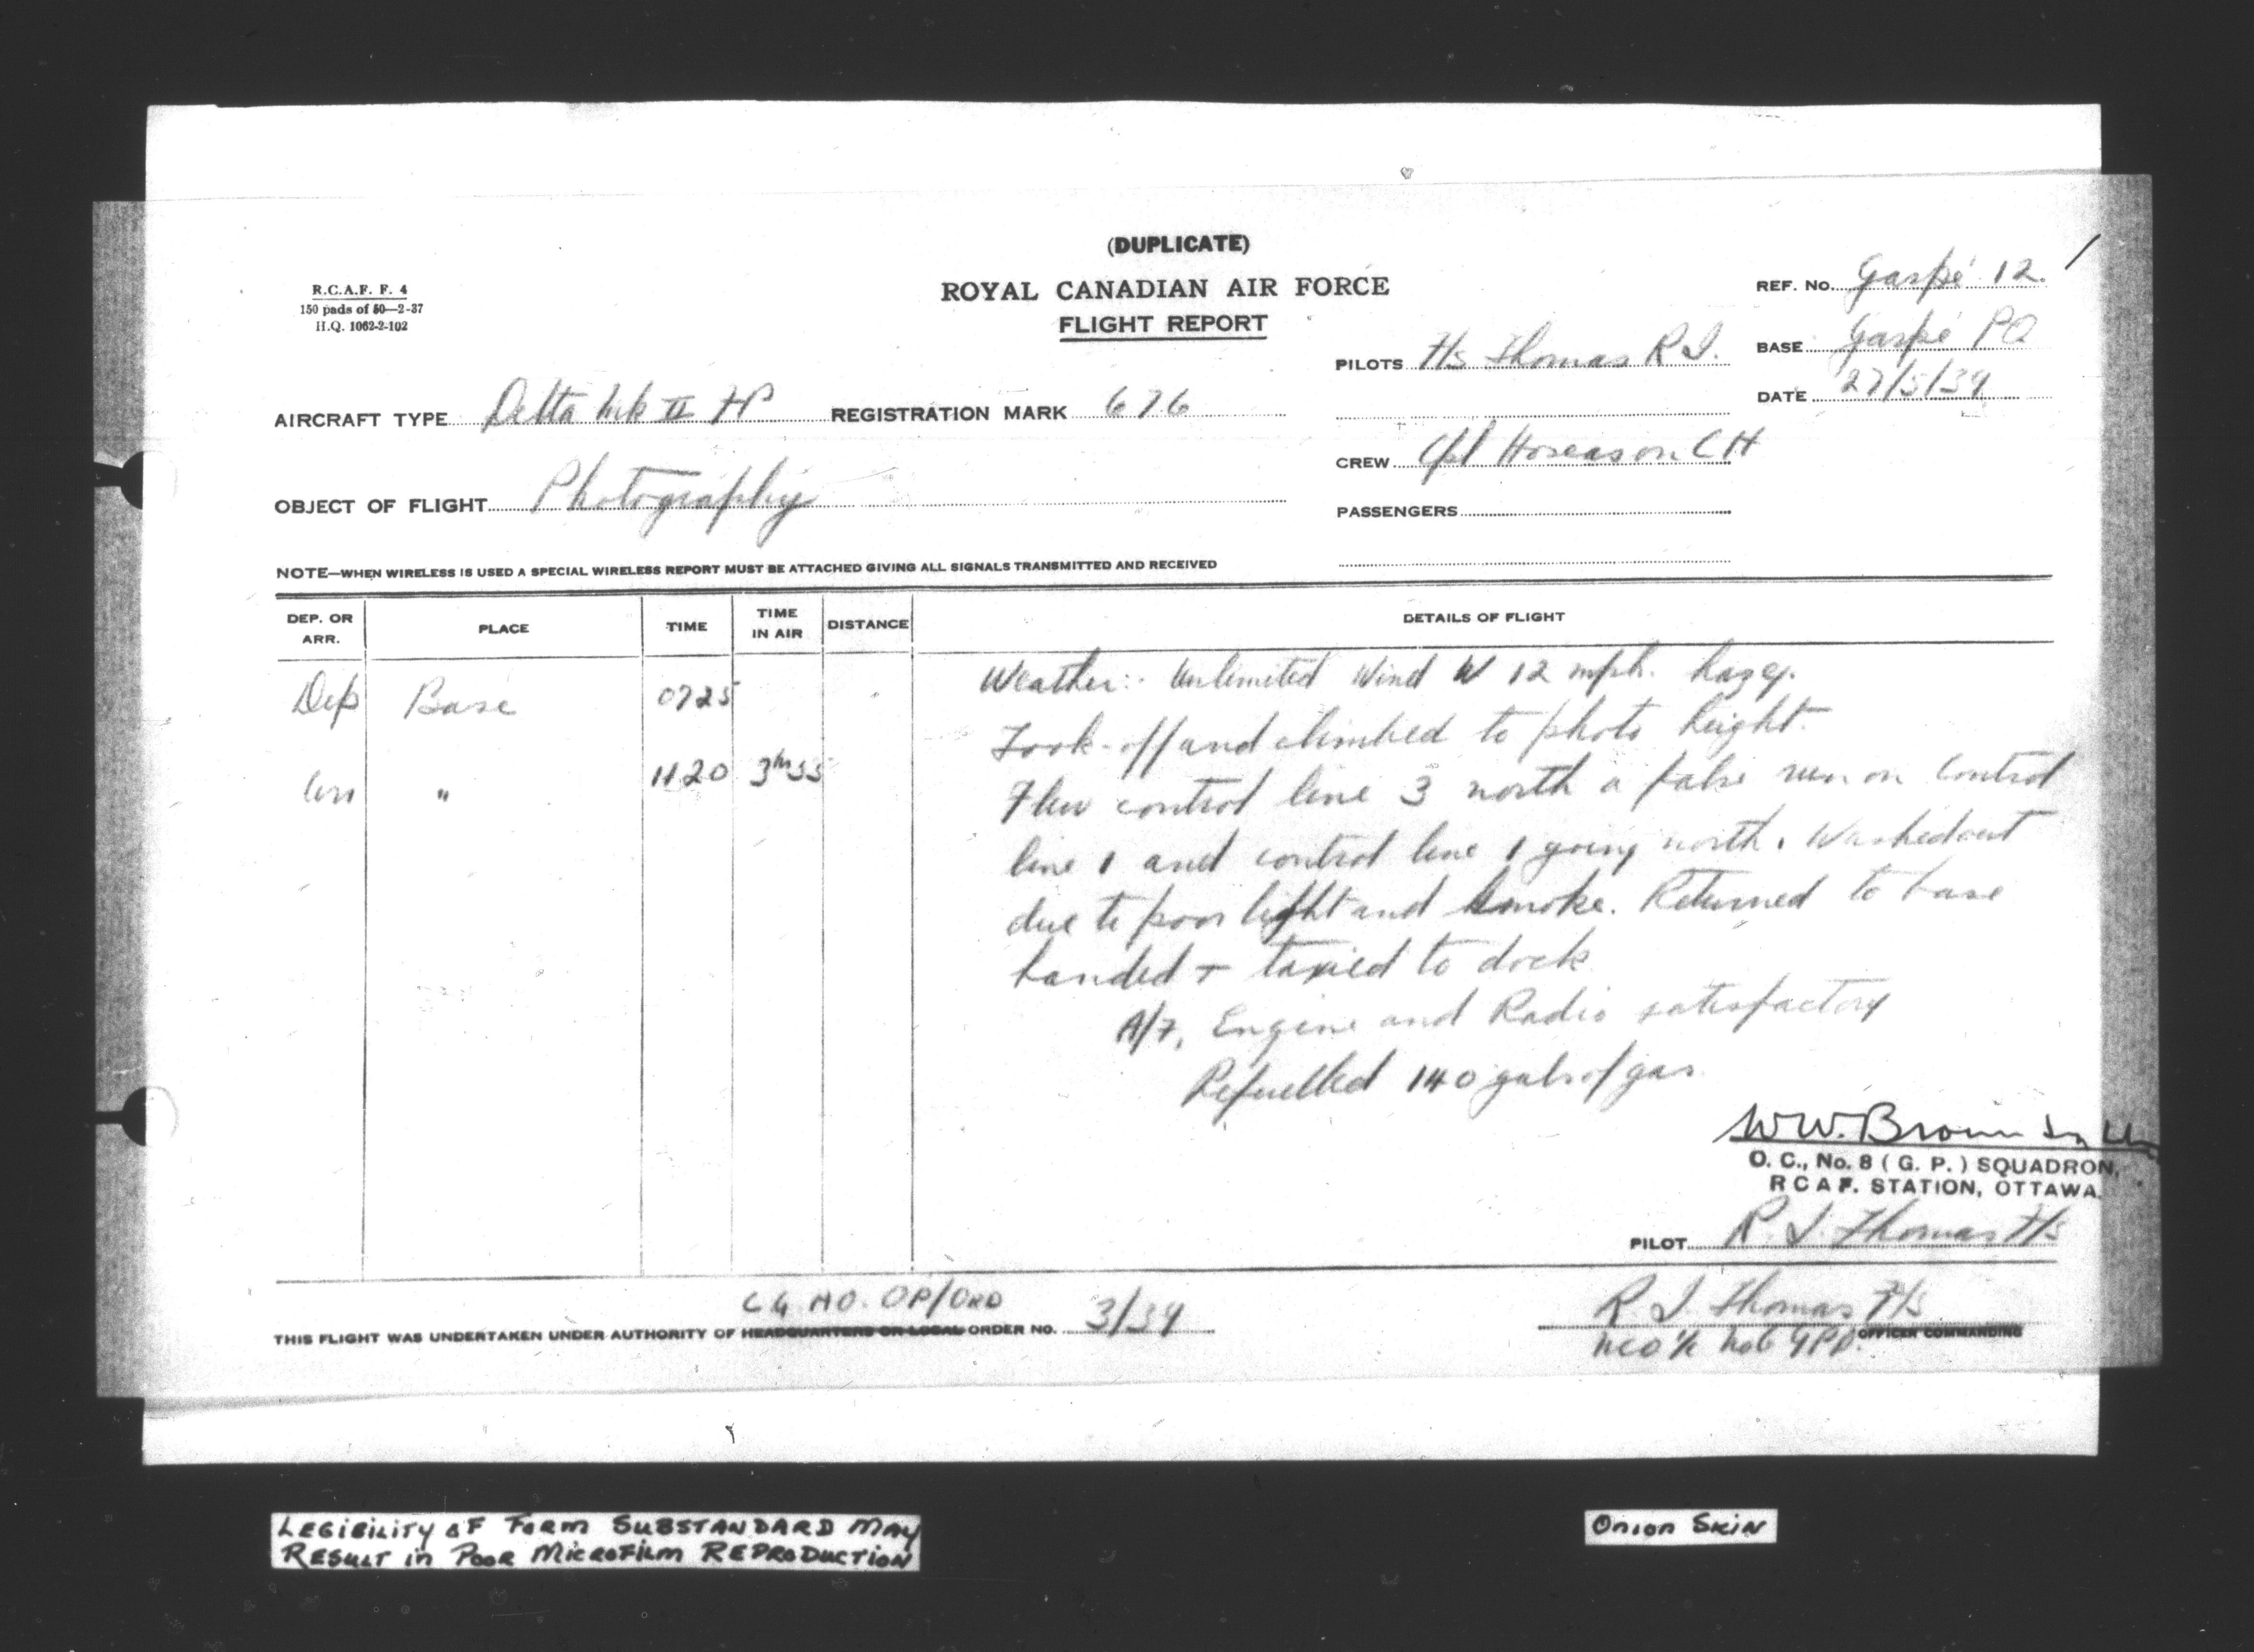 (DUPLICATE)
ROYAL CANADIAN AIR FORCE
FLIGHT REPORT
R.C.A.F. F. 4
150 pads of 50—2-37
H.Q. 1062-2-102
REF. No. Gaspé 12.
BASE Gaspé PQ
DATE 27/5/39
PILOTS F/s Thomas R J.
AIRCRAFT TYPE Delta Mk II FP REGISTRATION MARK 676
CREW Cpl Hoseason C H
OBJECT OF FLIGHT Photography
PASSENGERS
NOTE—WHEN WIRELESS IS USED A SPECIAL WIRELESS REPORT MUST BE ATTACHED GIVING ALL SIGNALS TRANSMITTED AND RECEIVED
DEP. OR ARR. PLACE TIME TIME IN AIR DISTANCE DETAILS OF FLIGHT
Dep Base 0725
Arr " 1120 3hr55
Weather:- Unlimited Wind W 12 mph. hazy.
Took-off and climbed to photo height.
Flew control line 3 north a false run on control
line 1 and control line 1 going north. Washedout
due to poor light and smoke. Returned to base
landed + taxied to dock
A/F, Engine and Radio satisfactory
Refuelled 140 gals of gas
W.W. Brown
O. C., No. 8 ( G. P. ) SQUADRON,
R C A F. STATION, OTTAWA.
PILOT R. J. Thomas F/s
C G HQ. OP/ORD
THIS FLIGHT WAS UNDERTAKEN UNDER AUTHORITY OF HEADQUARTERS OR LOCAL ORDER NO. 3/39
R J. Thomas F/s
NCO i/c No 6 GPD. OFFICER COMMANDING
LEGIBILITY OF FORM SUBSTANDARD MAY
RESULT in POOR MICROFILM REPRODUCTION
ONION SKIN